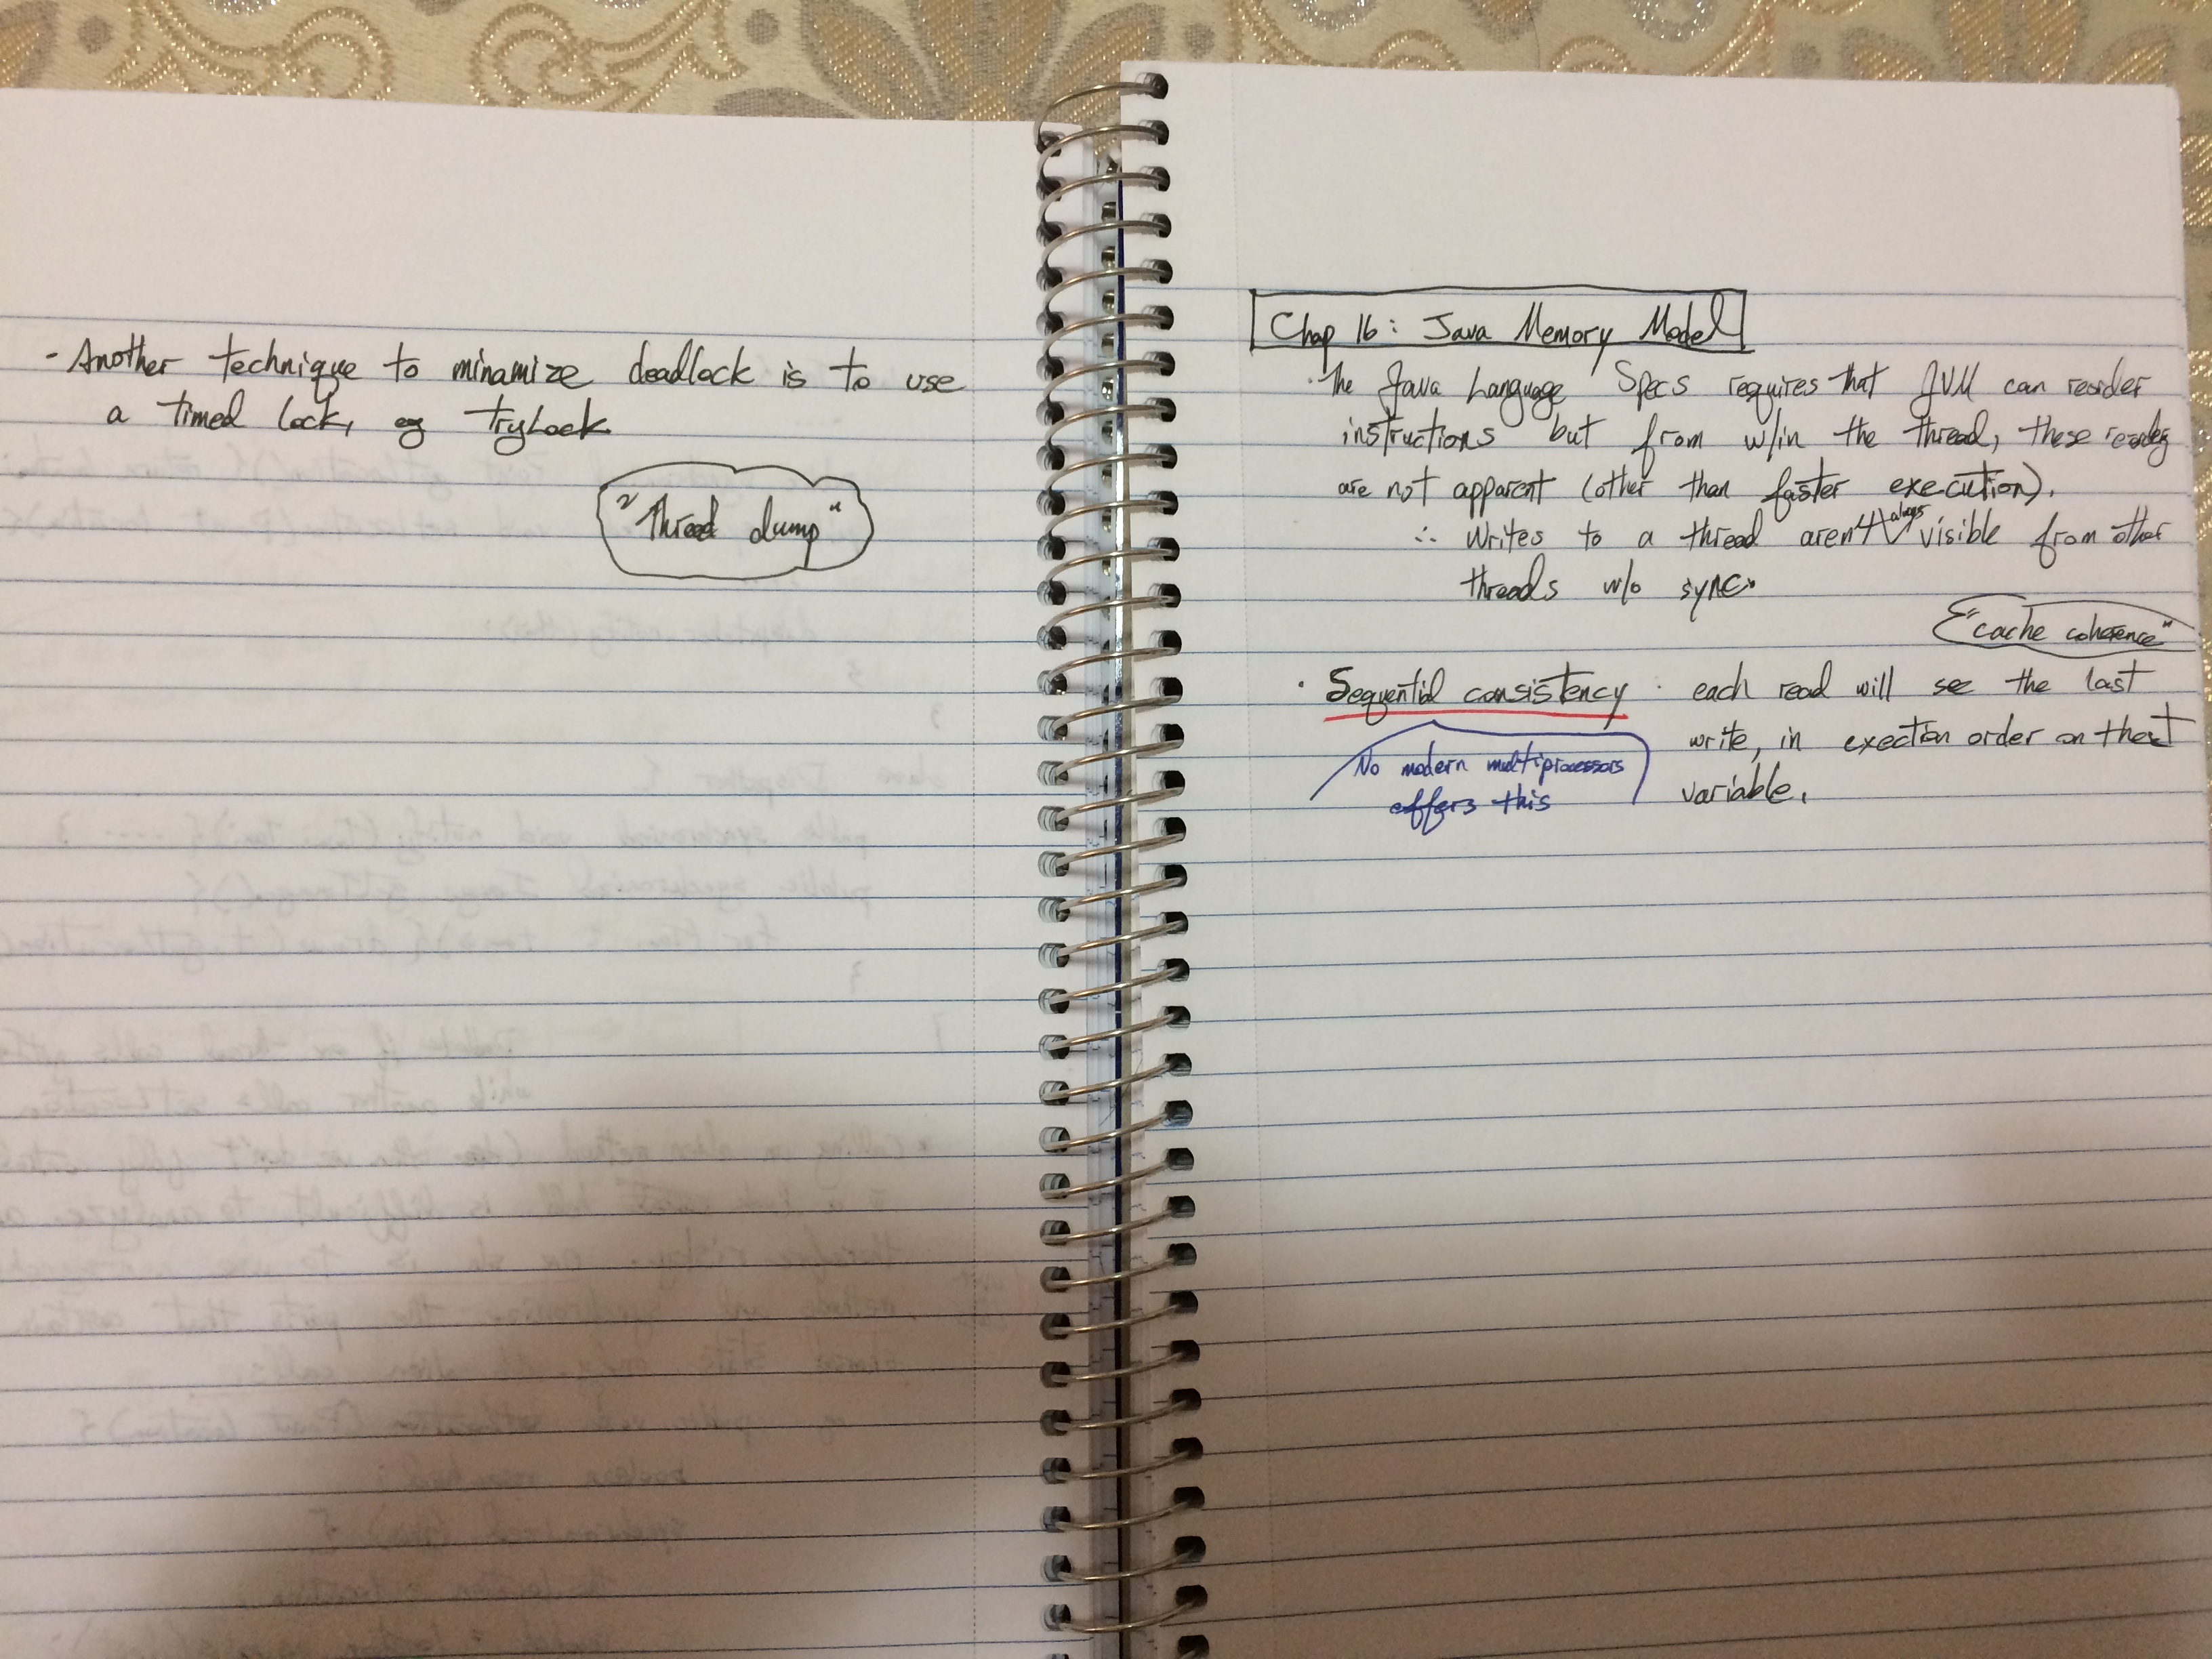 - Another technique to minamize deadlock is to use
a timed lock, eg tryLock.
"Thread dump"
Chap 16: Java Memory Model
. The Java Language Specs requires that JVM can reorder
instructions but from w/in the thread, these
are not apparent (other than faster execution).
∴ writes to a thread aren't always visible from other
threads w/o sync.
"cache coherence"
. Sequential consistency : each read will see the last
write, in exection order on that
variable.
No modern multiprocessors
offers this